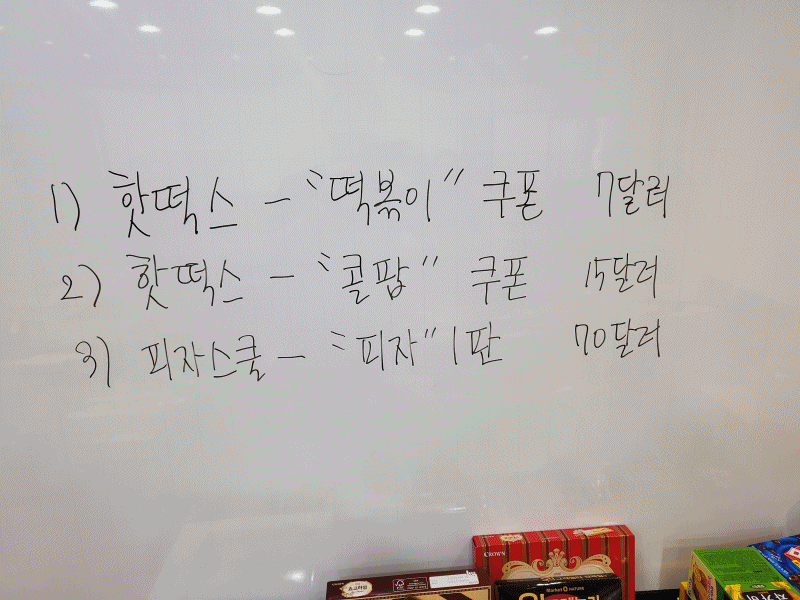 1) 핫떡스 - "떡볶이" 쿠폰 7달러
2) 핫떡스 - "콜팝" 쿠폰 15달러
3) 피자스쿨 - "피자" 1판 70달러
CROWN
Market O NATURE